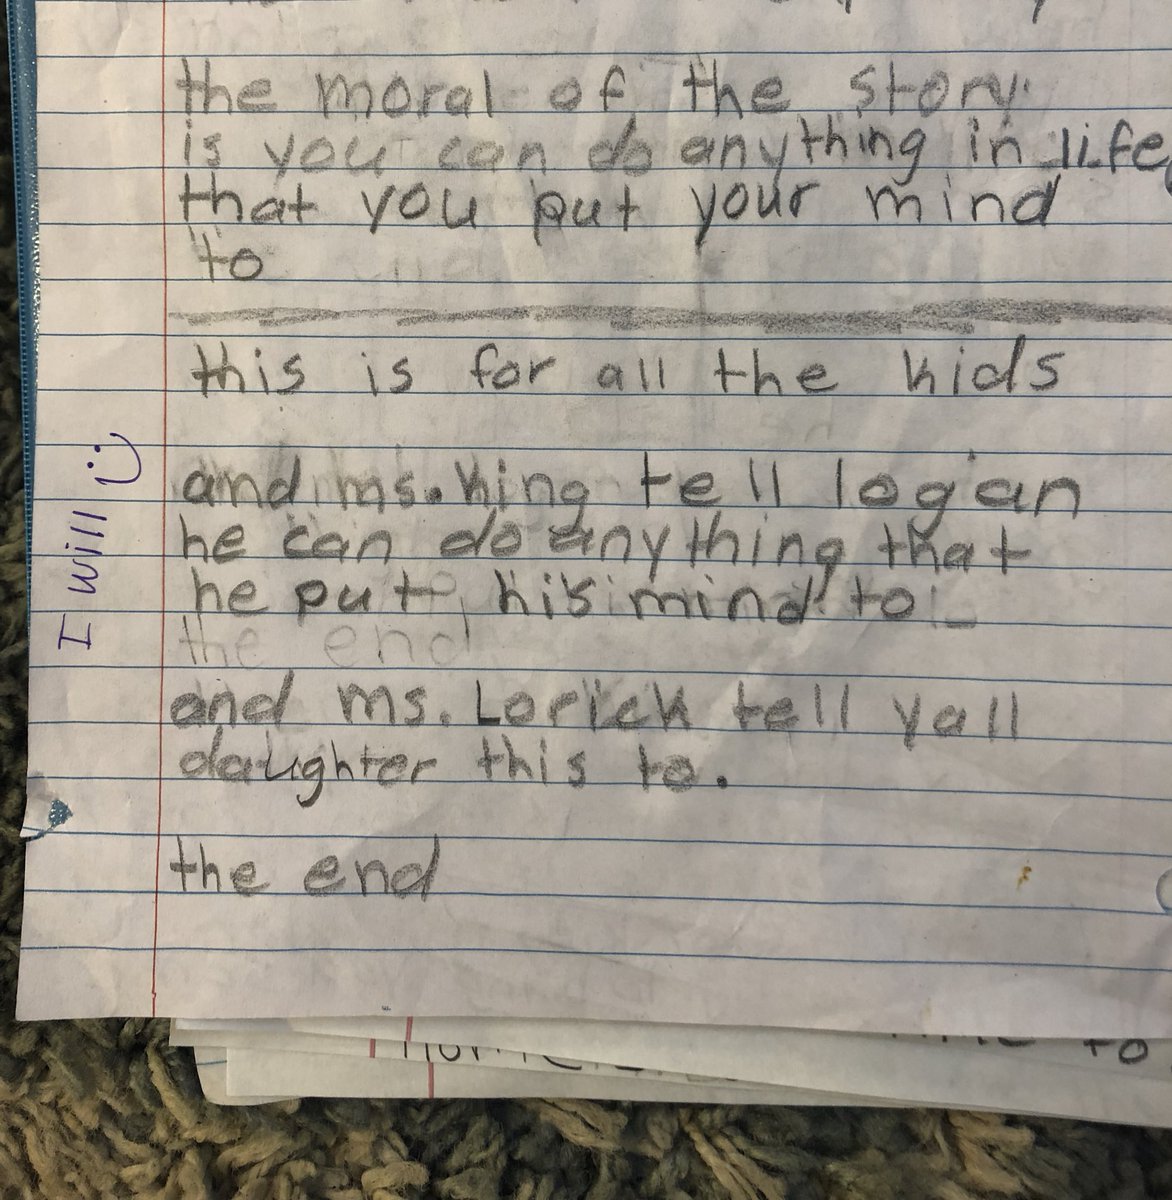 the moral of the story
is you can do anything in life
that you put your mind
to
this is for all the kids
and ms. King tell logan
he can do anything that
he put his mind to
the end
and ms. Lorick tell yall
daughter this to.
the end
I will :)
to